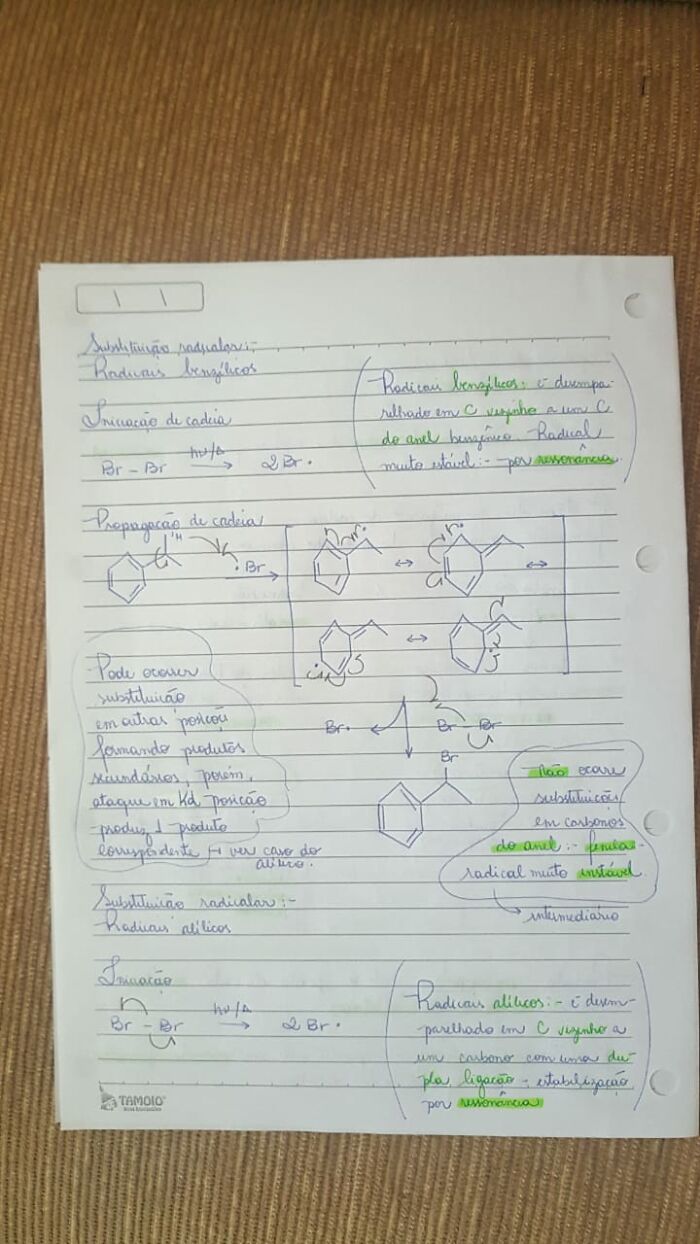 Substituição radicalar:-
Radicais benzílicos
Radicais benzílicos: é- desempa-
relhado em C vizinho a um C
do anel benzênico. Radical
muito estável:- por ressonância.
Iniciação de cadeia
Br - Br hν/Δ → 2Br •
Propagação de cadeia
H
• Br
↔ ↔
↔
Pode ocorrer
substituição
em outras posições
formando produtos
secundários, porém,
ataque em kd posição
produz 1 produto
correspondente → ver caso do
alílico.
Br•
Br - Br
Br
Não ocorre
substituição
em carbonos
do anel :-
radical muito instável
→ intermediário
Substituição radicalar :-
Radicais alílicos
Iniciação
Br - Br hν/Δ → 2Br •
Radicais alílicos:- é- desem-
parelhado em C vizinho a
um carbono com uma du-
pla ligação - estabilização
por ressonância
TAMOIO